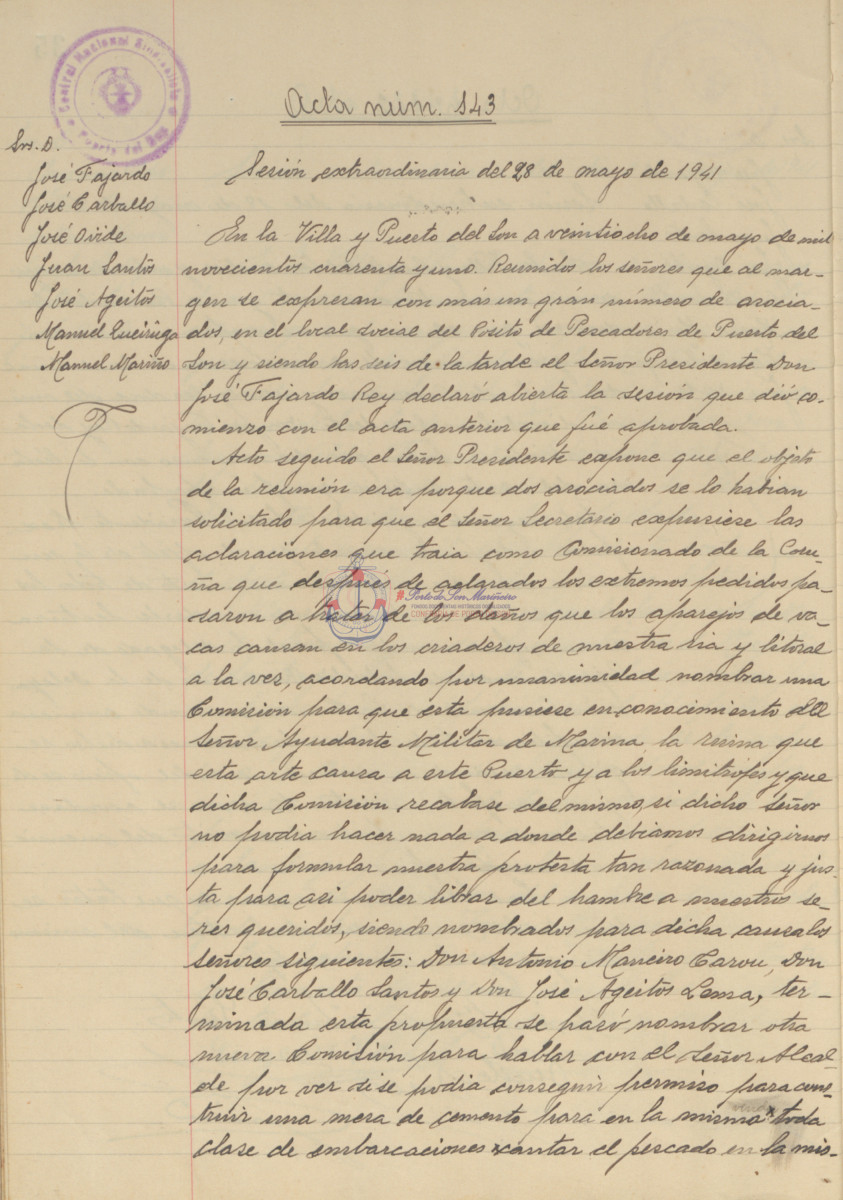 Central Nacional Sindicalista
Puerto del Son
Acta núm. 143
Srs. D.
José Fajardo
José Carballo
José Ovide
Juan Santos
José Ageitos
Manuel Queiruga
Manuel Mariño
Sesión extraordinaria del 28 de mayo de 1941
En la Villa y Puerto del Son a veintiocho de mayo de mil
novecientos cuarenta y uno. Reunidos los señores que al mar-
gen se expresan con más un grán número de asocia-
dos, en el local social del Pósito de Pescadores de Puerto del
Son y siendo las seis de la tarde el Señor Presidente Don
José Fajardo Rey declaró abierta la sesión que dió co-
mienzo con el acta anterior que fué aprobada.
Acto seguido el Señor Presidente expone que el objeto
de la reunión era porque dos asociados se lo habian
solicitado para que el Señor Secretario expusiese las
aclaraciones que traia como Comisionado de la Coru-
ña que después de aclarados los extremos pedidos pa-
saron a tratar de los daños que los aparejos de va-
cas causan en los criaderos de nuestra ria y litoral
a la vez, acordando por unanimidad nombrar una
Comisión para que esta pusiese en conocimiento del
Señor Ayudante Militar de Marina, la ruina que
esta arte causa a este Puerto y a los limitrofes y que
dicha Comisión recabase del mismo, si dicho Señor
no podia hacer nada a donde debiamos dirigirnos
para formular nuestra protesta tan razonada y jus-
ta para asi poder librar del hambre a nuestros se-
res queridos, siendo nombrados para dicha causa los
señores siguientes: Don Antonio Maneiro Carou, Don
José Carballo Santos y Don José Ageitos Lema, ter-
minada esta propuesta se pasó nombrar otra
nueva Comisión para hablar con el Señor Alcal-
de por ver si se podia conseguir permiso para cons-
truir una mesa de cemento para en la misma x toda
clase de embarcaciones x cantar el pescado en la mis-
Porto do Son Mariñeiro